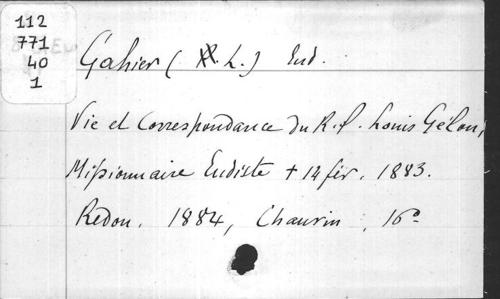 112
771
40
1
Gahier (H. L.) Eud.
Vie et Correspondance du R. P. Louis Gélon,
Missionnaire Eudiste + 14 fév. 1883.
Redon. 1884, Chauvin, 16º